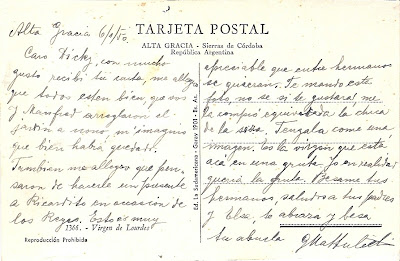 TARJETA POSTAL
ALTA GRACIA - Sierras de Córdoba
República Argentina
Alta Gracia 6/1/50.
Caro Dicky, con mucho
gusto recibi tu carta, me alegro
que todos esten bien que vos
y Manfred arreglaron el
jardin a nono, m'imagino
que bien habrá quedado.
Tambien me alegro que pen-
saron de hacerle un presente
a Ricardito en ocasión de
los Reyes. Esto es muy
1366. - Virgen de Lourdes
Reproducción Prohibida
Ed. La Sudamericana
Bs. As.
apreciable que entre hermanos
se quieran. Te mando esta
foto, no se si te gustará, me
la compró equivocada la chica
de la Tengala como una
imagen, es la virgen que está
acá en una gruta. Yo en realidad
queria la gruta. Besame tus
hermanos, saludos a tus padres
y Elsa, te abraza y besa
tu abuela